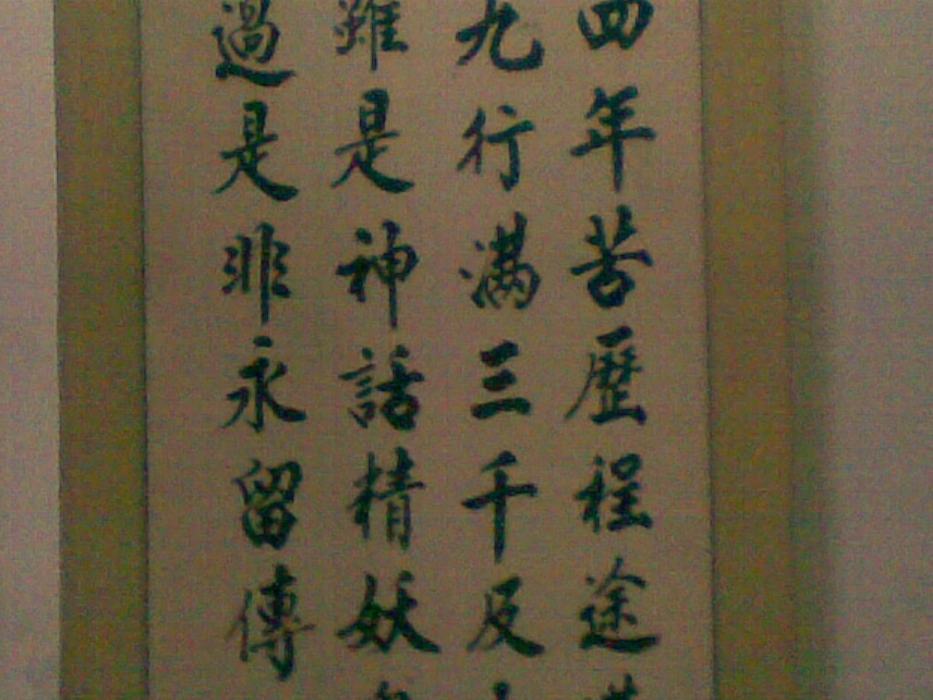 四年苦歷程途
九行滿三千及
雖是神話精妖
過是非永留傳